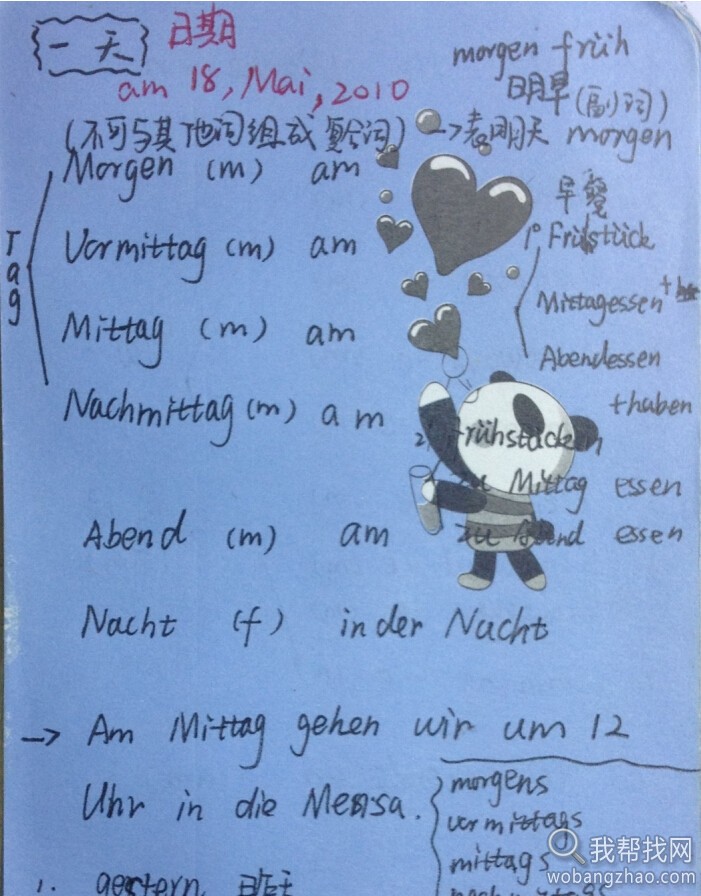 一天 日期
am 18, Mai, 2010
morgen früh
明早(副词)
(不可与其他词组成复合词) → 表明天 morgen
Tag
Morgen (m) am
Vormittag (m) am
Mittag (m) am
Nachmittag (m) am
Abend (m) am
Nacht (f) in der Nacht
早餐
1° Frühstück
Mittagessen +
Abendessen
+haben
2° frühstücken
zu Mittag essen
zu Abend essen
→ Am Mittag gehen wir um 12
Uhr in die Mensa.
morgens
vormittags
mittags
1. gestern 昨天
我帮找网
wobangzhao.com